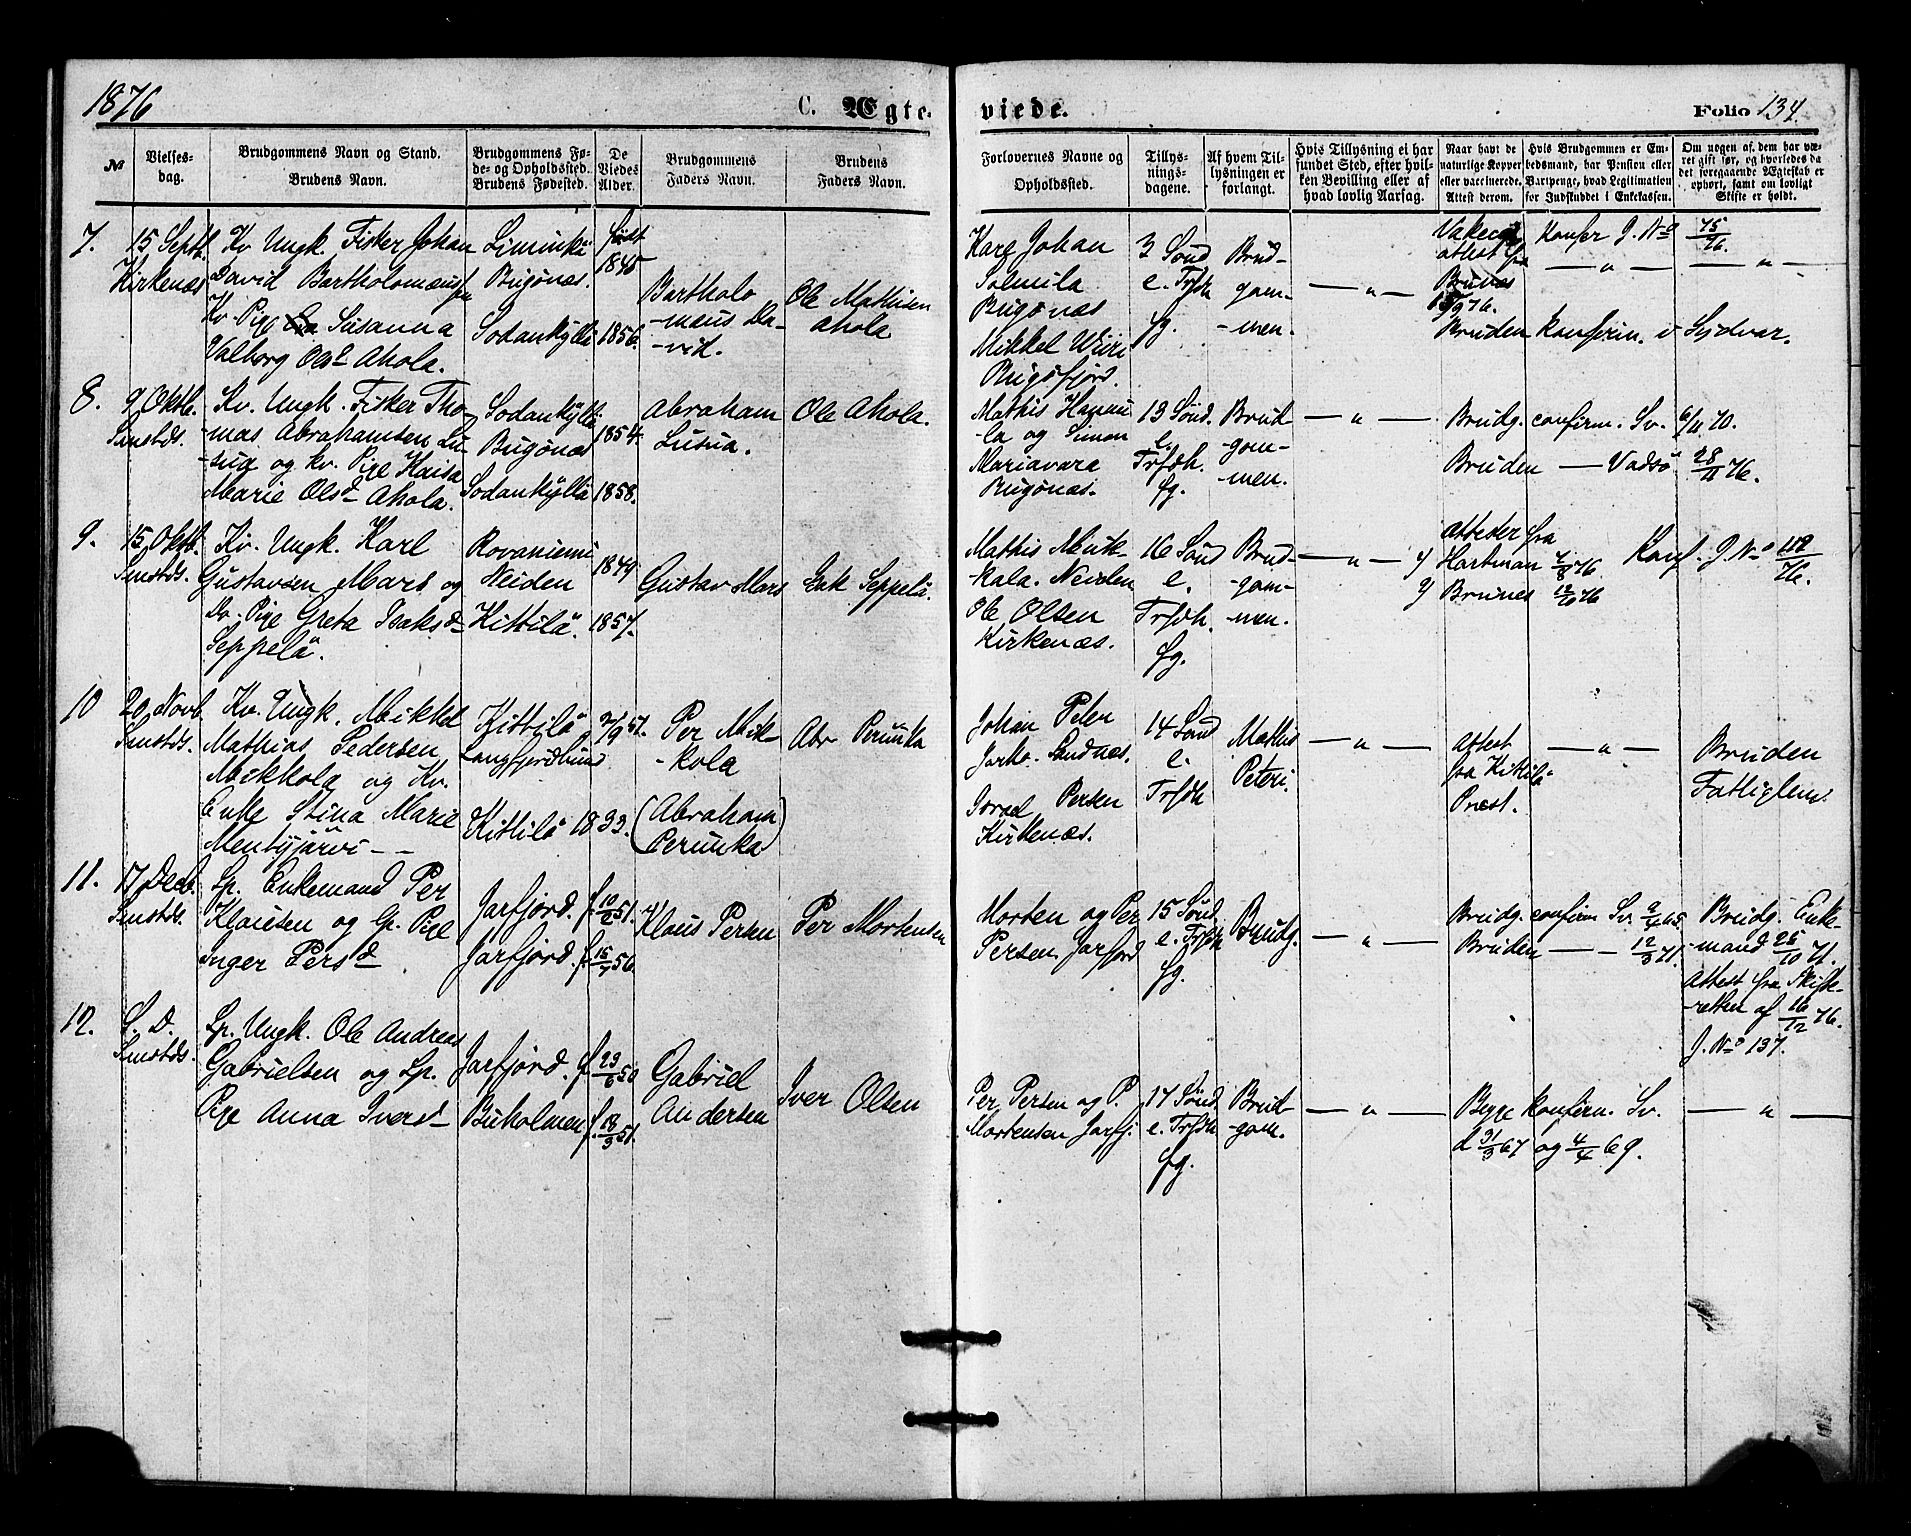 1876
C. Ægte-
viede.
Folio 134.
№
Vielses-
dag.
Brudgommens Navn og Stand.
Brudens Navn.
Brudgommens Fø-
de- og Opholdssted.
Brudens Fødested.
De
Viedes
Alder.
Brudgommens
Faders Navn.
Brudens
Faders Navn.
Forlovernes Navne og
Opholdssted.
Tillys-
nings-
dagene.
Af hvem Til-
lysningen er
forlangt.
Hvis Tillysning ei har
fundet Sted, efter hvil-
ken Bevilling eller af
hvad lovlig Aarsag.
Naar havt de
naturlige Kopper
eller vaccinerede,
Attest derom.
Hvis Brudgommen er Em-
bedsmand, har Pension eller
Vartpenge, hvad Legitimation
for Indskuddet i Enkekassen.
Om nogen af dem har væ-
ret gift før, og hvorledes da
det foregaaende Ægteskab er
ophørt, samt om lovligt
Skifte er holdt.
7.
15 Septb.
Kirkenæs
Kv. Ungk. Fisker Johan
David Bartholomæus
Kv. Pige Susanna
Valborg Olsd Ahola.
Liminka
Bugønæs.
Sodankylla
Født
1845
1856.
Bartholo
-mæus Da-
-vid.
Ole Mathisen
Ahola
Karl Johan
Bugønæs
Mikkel Wiiri
Bugøfjord.
3 Sønd
e. Trfdh
fg.
Brud-
gom-
-men.
— " —
attest fra
Brunes
Bruden konfirm. i Sydvar.
Konfer J. No 75/76.
— " —
— " —
8.
9 Oktb.
Smstds.
Kv. Ungk. Fisker Tho-
-mas Abrahamsen Lu-
-sua og kv. Pige Kaisa
Marie Olsd Ahola.
Sodankyllä
Bugønæs
Sodankyllä
1854.
1858.
Abraham
Lusua.
Ole Ahola.
Mathis Hannu-
-la og Simon
Mariavara
Bugønæs.
13 Sønd.
e.
Trfdh.
fg.
Brud-
gom-
-men.
— " —
Brudg. confirm. Sv. 6/11 70.
Bruden — Vadsö 76.
9.
15 Oktb.
Smstds.
Kv. Ungk. Karl
Gustavsen Mars og
Do. Pige Greta Isaksd
Seppelä.
Rovaniemi
Neiden
Kittilä.
1849
1857.
Gustav Mars
Isak Seppelä.
Mathis Merik-
kala. Neiden
Ole Olsen
Kirkenæs.
16 Sønd
e.
Trfdh.
fg.
Brud-
-gom-
-men.
— " —
Attester fra
Hartman
Brunes 12/10 76
Konf. J. No
10
20 Novb.
Smstds.
Kv. Ungk. Mikkel
Mathias Pedersen
Mikkola og Kv.
Enke Stina Marie
Mentyjärvi —
Kittilä
Langfjordbund
Kittilä
51.
1833.
Per Mik-
-kola
(Abraham)
(Perunka)
Abr Perunka
Johan Peter
Jarko. Sandnæs.
Israel Persen
Kirkenæs.
14 Sønd
e.
Trfdh
Mathis
Peteri.
— " —
Attest
fra Kittilä
Præst.
— " —
Bruden
Fattiglem.
11.
17 Decb.
Smstds.
Lp. Enkemand Per
Klausen og Lp. Pige
Inger Persd
Jarfjord.
Jarfjord.
f. 10/2 51.
f. 15/7 56.
Klaus Persen
Per Mortensen
Morten og Per
Persen. Jarfjord
15 Sønd.
e. Trfdh
fg.
Brudg.
— " —
Brudg. confirm Sv. 65.
Bruden — — 12/3 71.
Brudg. Enke-
-mand 25/10 71.
Attest fra Skifte-
-retten af 16/12 76.
J. No 137.
12.
S. D.
Smstds.
Lp. Ungk. Ole Andreas
Gabrielsen og Lp.
Pige Anna Iversd
Jarfjord.
Buholmen
f. 23/6 50
f. 18/3 51.
Gabriel
Andersen
Iver Olsen
Per Persen og P.
Mortensen Jarfj.
17 Sønd.
e. Trfdh
fg.
Brud-
gom.
— " —
Begge konfirm. Sv.
d 31/3 67 og 4/4 69.
— " —